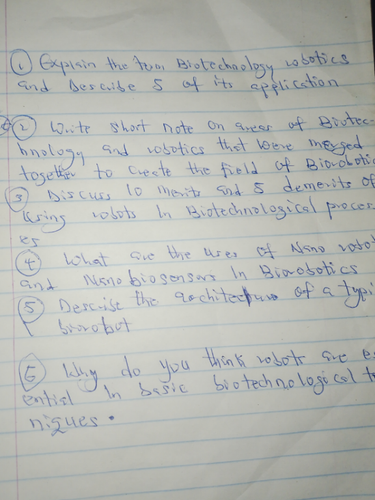 ① Explain the term Biotechnology robotics
and Describe 5 of its application
② Write short note on areas of Biotec-
hnology and robotics that were merged
together to create the field of Biorobotic
③ Discuss 10 merits and 5 demerits of
Using robots In Biotechnological proces
es
④ What are the uses of Nano robot
and Nanobiosensors In Biorobotics
⑤ Describe the architecture of a typi
biorobot
⑥ Why do you think robots are e
ential In basic biotechnological t
niques.